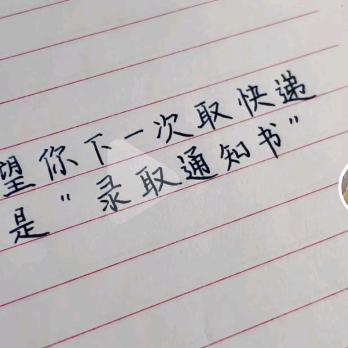 望你下一次取快递
是“录取通知书”